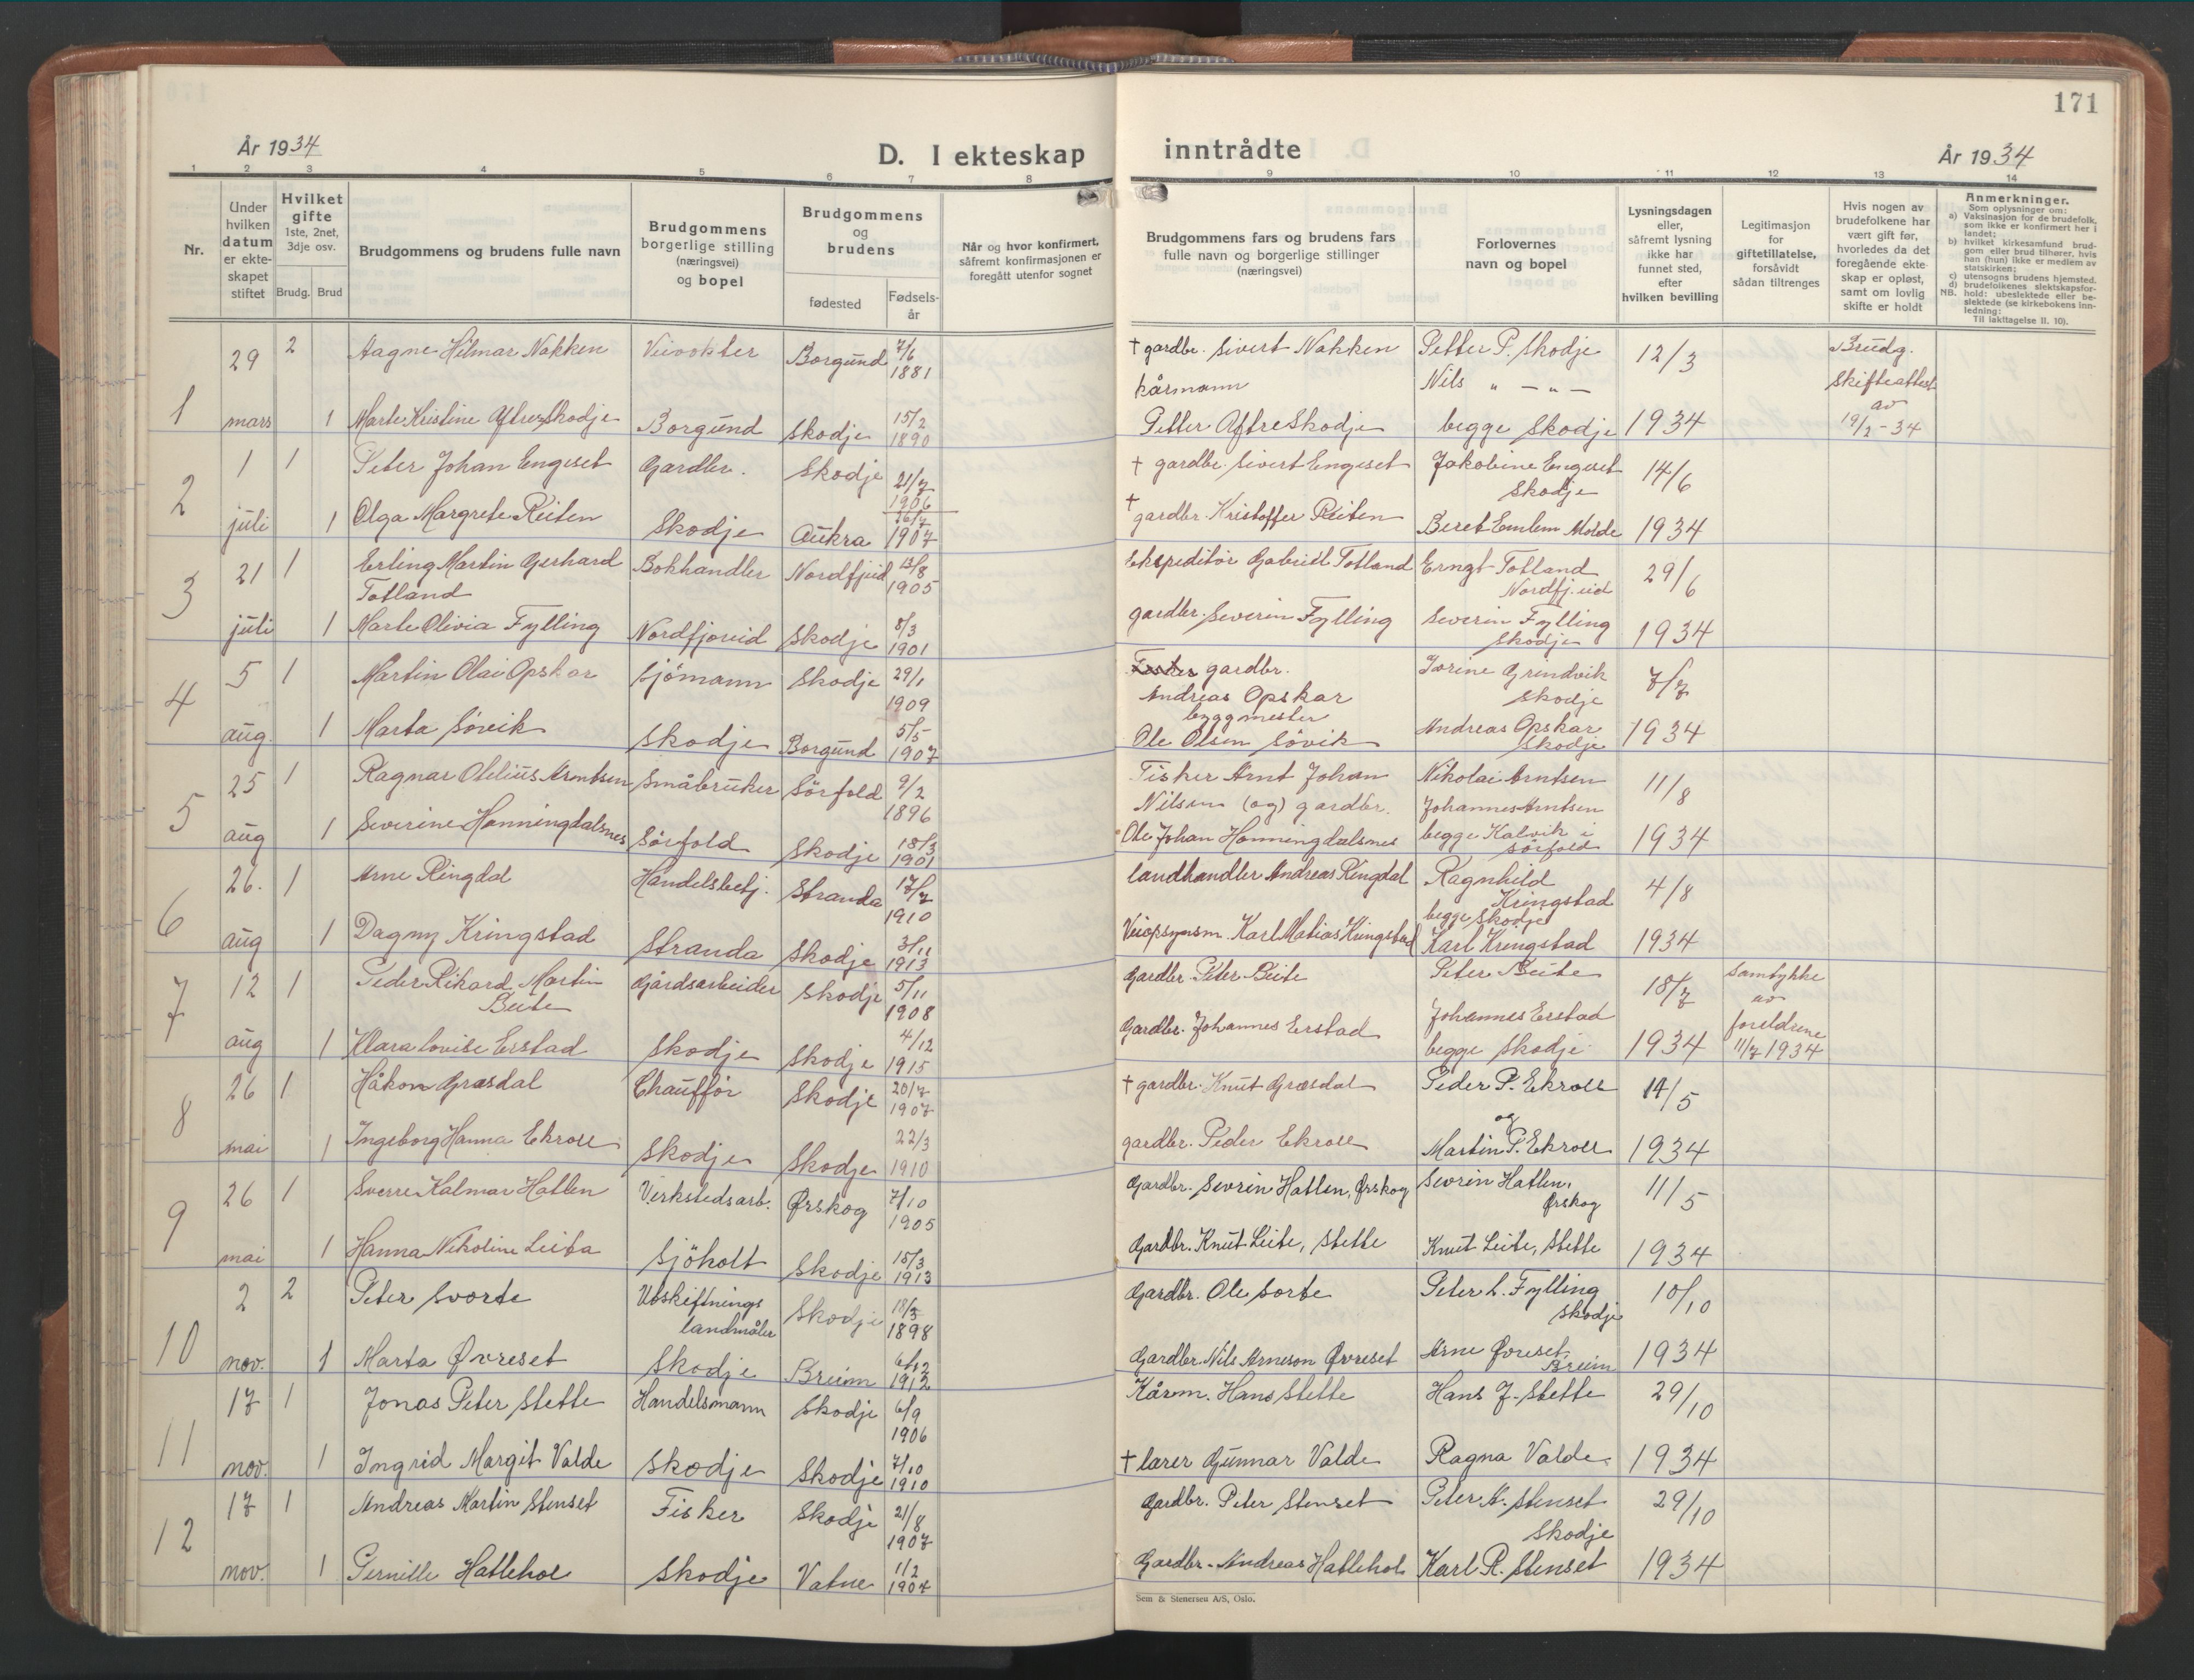 171
År 1934
D. I ekteskap inntrådte
År 1934
1 2 3 4 5 6 7 8 9 10 11 12 13 14
Nr.
Under hvilken datum er ekteskapet stiftet
Hvilket gifte 1ste, 2net, 3dje osv.
Brudg. Brud
Brudgommens og brudens fulle navn
Brudgommens borgerlige stilling (næringsvei) og bopel
Brudgommens og brudens
fødested
Fødselsår
Når og hvor konfirmert, såfremt konfirmasjonen er foregått utenfor sognet
Brudgommens fars og brudens fars fulle navn og borgerlige stillinger (næringsvei)
Forlovernes navn og bopel
Lysningsdagen eller, såfremt lysning ikke har funnet sted, efter hvilken bevilling
Legitimasjon for giftetillatelse, forsåvidt sådan tiltrenges
Hvis nogen av brudefolkene har vært gift før, hvorledes da det foregående ekteskap er opløst, samt om lovlig skifte er holdt
Anmerkninger.
Som oplysninger om:
a) Vaksinasjon for de brudefolk, som ikke er konfirmert her i landet;
b) hvilket kirkesamfund brudgom eller brud tilhører, hvis han (hun) ikke er medlem av statskirken;
c) utensogns brudens hjemsted.
d) brudefolkenes slektskapsforhold: ubeslektede eller beslektede (se kirkebokens innledning:
NB. Til iakttagelse II. 10).
1 29 2 Aagne Hilmar Nakken Veivokter Borgund 7/6 1881 † gardbr. Sivert Nakken Petter P. Skodje 12/3 Brudg. skifteattest
kårmann Nils " — " —
mars 1 Marte Kristine Aftreskodje Borgund Skodje 15/2 1890 Petter Aftreskodje begge Skodje 1934 av 19/2-34
2 1 1 Peter Johan Engeset Gardbr. Skodje 21/7 1906 † gardbr. Sivert Engeset Jakobine Engeset Skodje 14/6
juli 1 Olga Margrete Reiten Skodje Aukra 26/7 1907 † gardbr. Kristoffer Reiten Beret Emlem Molde 1934
3 21 1 Erling Martin Gerhard Totland Bokhandler Nordfjeid 13/8 1905 Ekspeditør Gabriel Totland Ernst Totland Nordfj.eid 29/6
juli 1 Marte Olivia Fylling Nordfjoreid Skodje 8/3 1901 gardbr. Severin Fylling Severin Fylling Skodje 1934
4 5 1 Martin Olai Opskar Sjömann Skodje 29/1 1909 gardbr. Andreas Opskar Jorine Grindvik Skodje 7/7
aug. 1 Marta Søvik Skodje Borgund 5/5 1907 byggmester Ole Olsen Søvik Andreas Opskar Skodje 1934
5 25 1 Ragnar Olelius Arntsen Småbruker Sörfold 9/2 1896 Fisker Arnt Johan Nilsen (og) gardbr. Nikolai Arntsen Johannes Arntsen 11/8
aug 1 Severine Honningdalsnes Sörfold Skodje 18/3 1901 Ole Johan Honningdalsnes begge Kalvik i Sörfold 1934
6 26. 1 Arne Ringdal Handelsbetj. Stranda 17/7 1910 landhandler Andreas Ringdal Ragnhild Kringstad 4/8
aug 1 Dagny Kringstad Stranda Skodje 3/11 1913 Veiopsynsm. Karl Matias Kringstad begge Skodje Karl Kringstad 1934
7 12 1 Peder Rikard Martin Beite Gårdsarbeider Skodje 5/11 1908 Gardbr. Peter Beite Peter Beite 18/7 Samtykke av
aug 1 Klara Lovise Erstad Skodje Skodje 4/12 1915 Gardbr. Johannes Erstad Johannes Erstad begge Skodje 1934 foreldrene 11/7 1934
8 26 1 Håkon Græsdal Chauffør Skodje 20/7 1907 † gardbr. Knut Græsdal Peder P. Ekroll 14/5
og
mai 1 Ingeborg Hanna Ekroll Skodje Skodje 22/3 1910 gardbr. Peder Ekroll Martin P. Ekroll 1934
9 26 1 Sverre Kalmar Hatlen Verkstedsarb. Ørskog 7/10 1905 Gardbr. Sevrin Hatlen, Ørskog Sevrin Hatlen, Ørskog 11/5
mai 1 Hanna Nikoline Leite Sjöholt Skodje 15/3 1913 Gardbr. Knut Leite, Stette Knut Leite, Stette 1934
10 2 2 Peter Svorte Utskiftnings landmåler Skodje 18/3 1898 Gardbr. Ole Sorte Peter L. Fylling Skodje 10/10
nov. 1 Marta Øvreset Skodje Breim 6/12 1912 Gardbr. Nils Arneson Øvreset Arne Øvreset Breim 1934
11 17 1 Jonas Peter Stette Handelsmann Skodje 6/9 1906 Kårm. Hans Stette Hans J. Stette 29/10
nov. 1 Ingrid Margit Valde Skodje Skodje 7/10 1910 † lærer Gunnar Valde Ragna Valde 1934
12 17 1 Andreas Martin Stenset Fisker Skodje 21/8 1907 Gardbr. Peter Stenset Peter A. Stenset Skodje 29/10
nov. 1 Pernille Hatlehol Skodje Vatne 1/2 1904 Gardbr. Andreas Hatlehol Karl R. Stenset 1934
Sem & Stenersen A/S, Oslo.